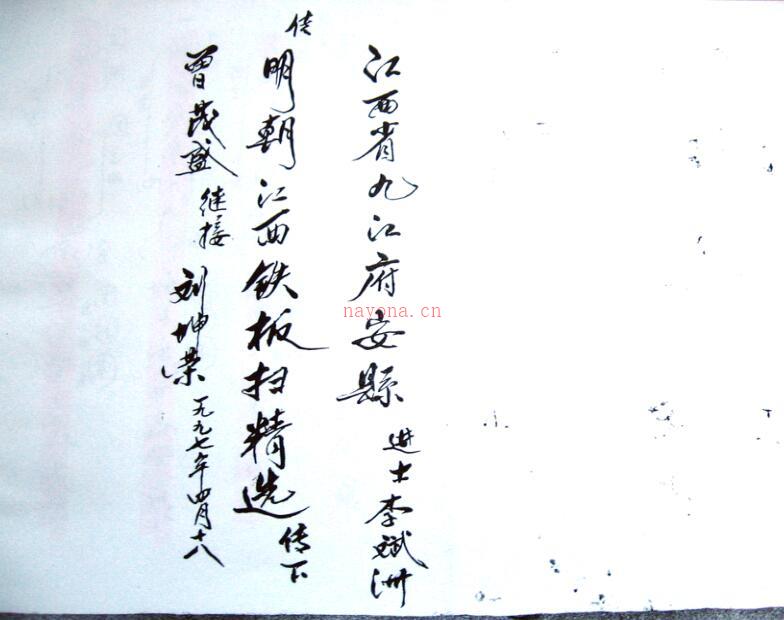 江西省九江府安縣 进士李斌洲
传 明朝江西铁板扫精选 传下
曾茂盛 继接 刘坤荣 一九九七年四月十八
nayona.cn